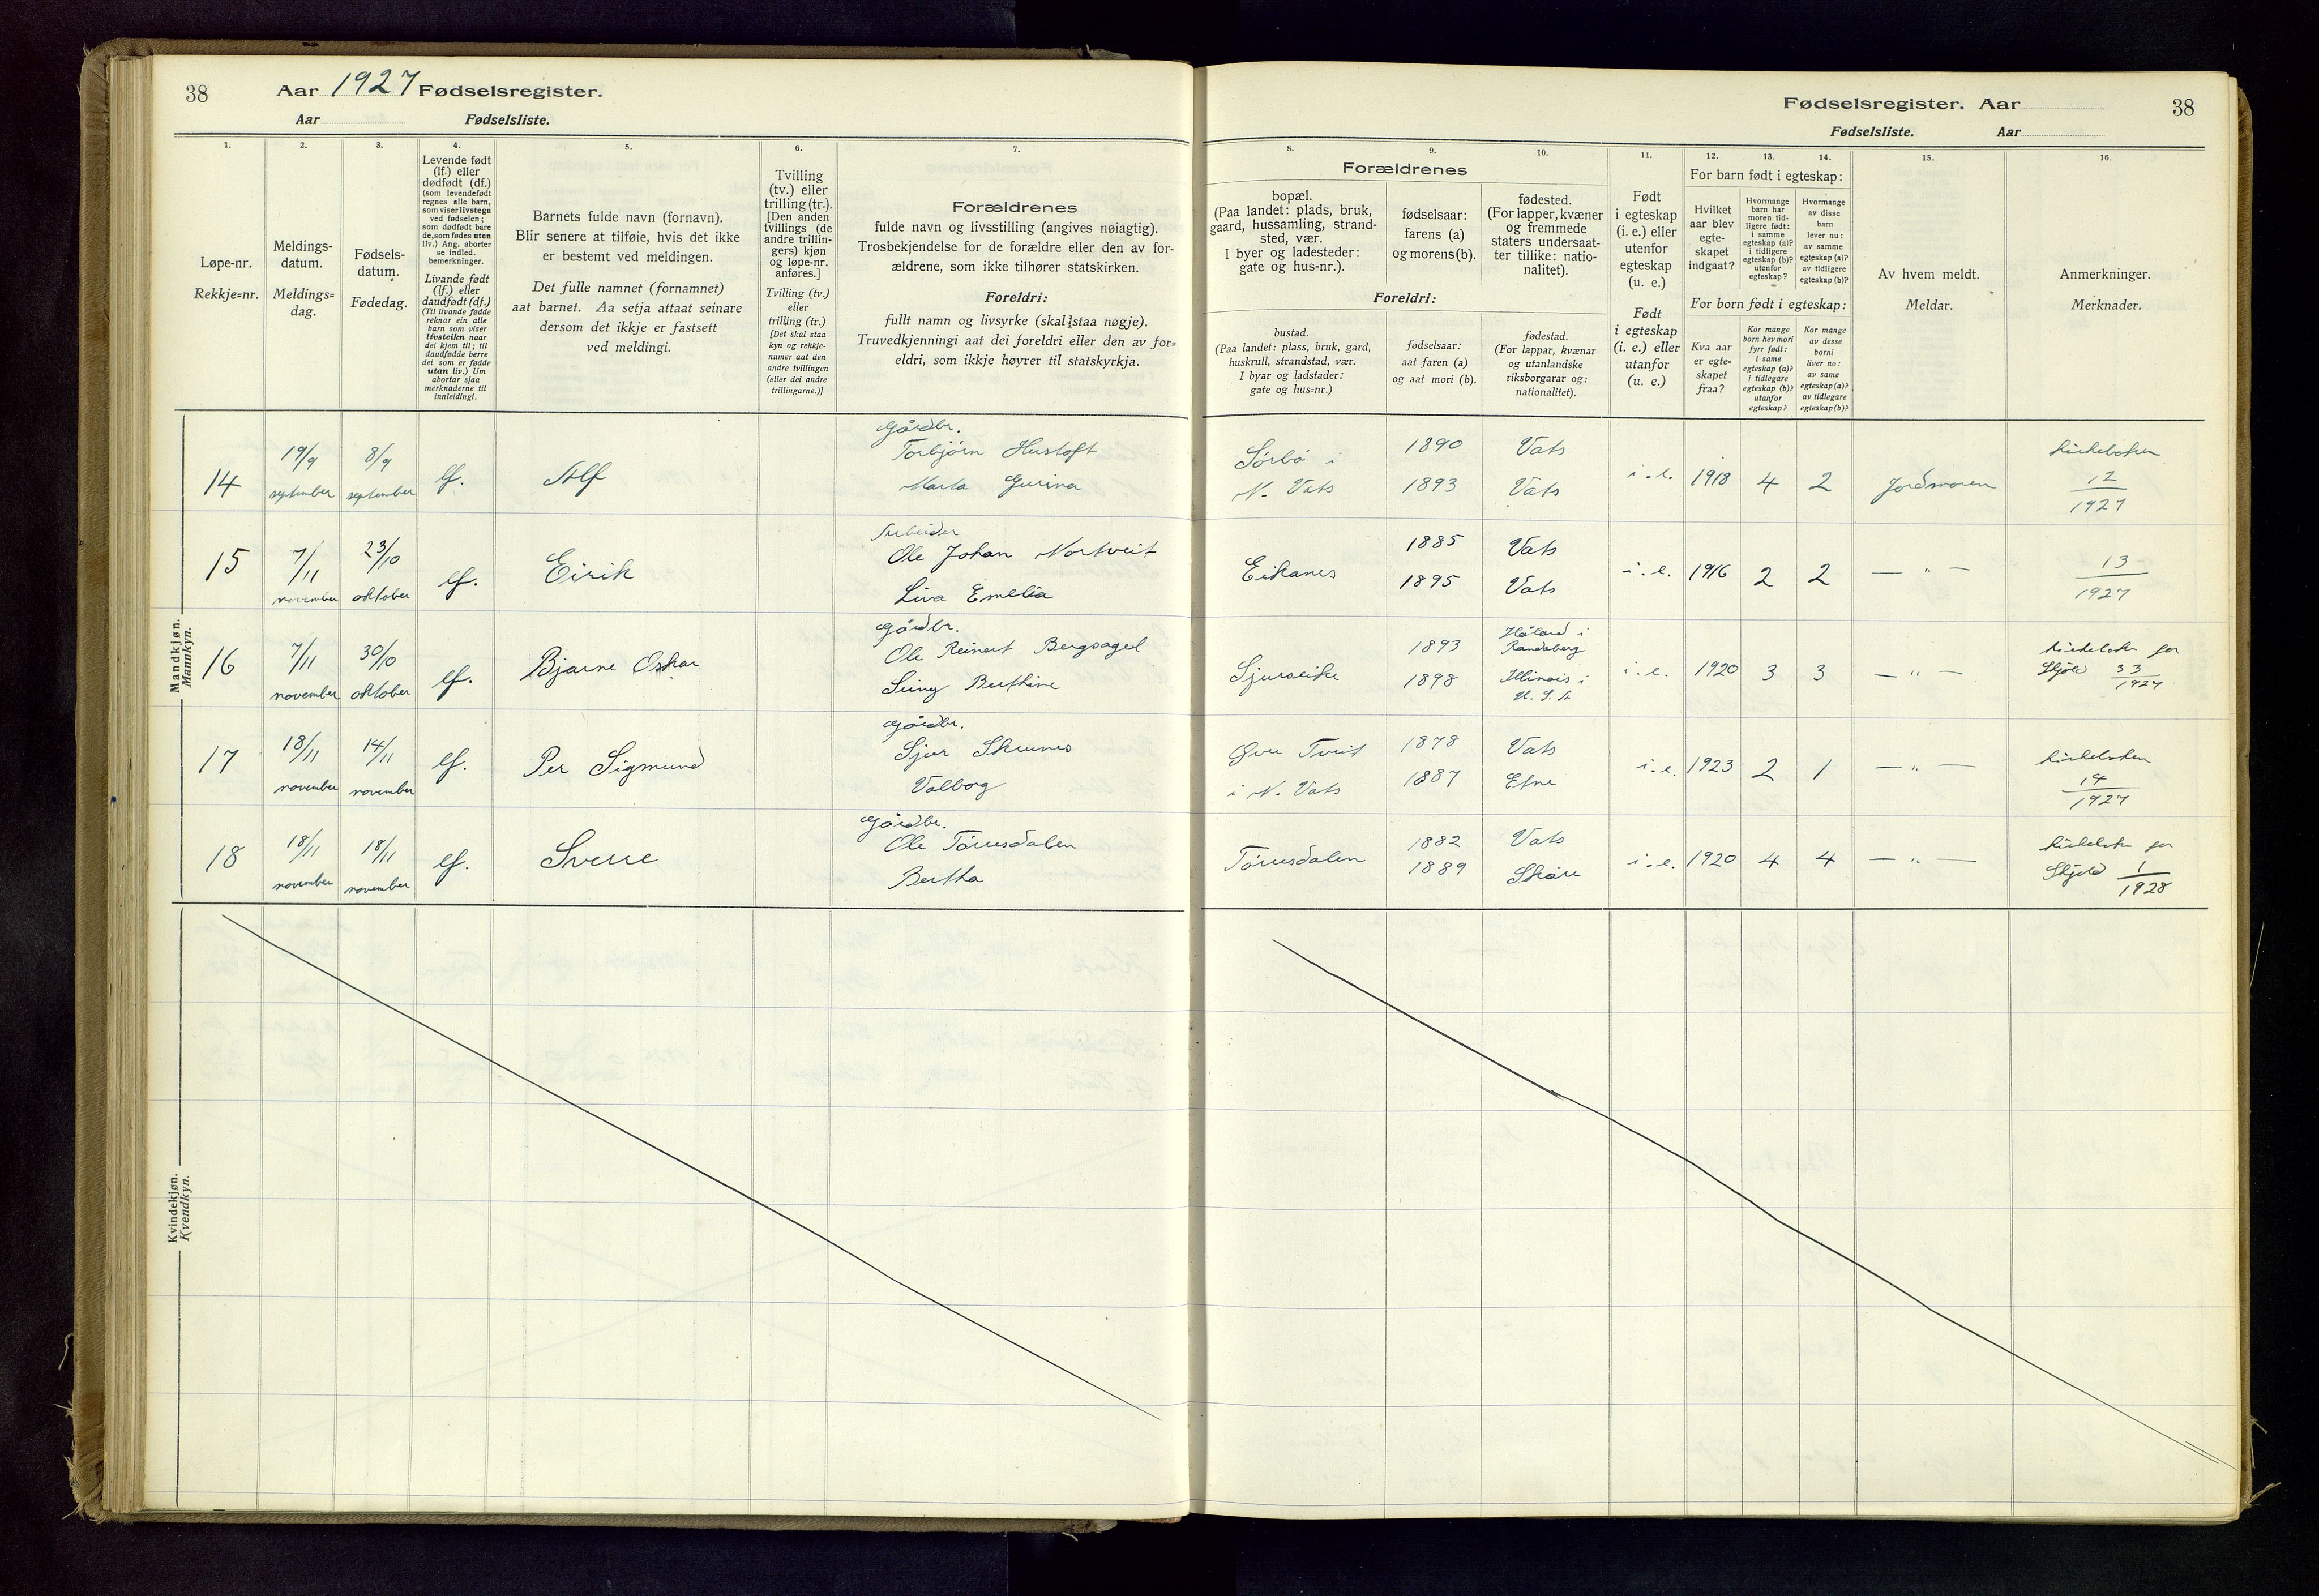 38
Aar 1927 Fødselsregister.
Aar
Fødselsliste.
1.
2.
3.
4.
5.
6.
7.
Løpe-nr.
Rekkje=nr.
Meldings-
datum.
Meldings=
dag.
Fødsels-
datum.
Fødedag.
Levende født
(lf.) eller
dødfødt (df.)
(som levendefødt
regnes alle barn,
som viser livstegn
ved fødselen;
som dødfødt bare
de, som fødes uten
liv.) Ang. aborter
se indled.
bemerkninger.
Livande født
(lf.) eller
daudfødt (df.)
(Til livande fødde
reknar ein alle
barn som viser
livsteikn naar
dei kjem til; til
daudfødde berre
dei som er fødde
utan liv.) Um
abortar sjaa
merknaderne til
innleiding).
Barnets fulde navn (fornavn).
Blir senere at tilføie, hvis det ikke
er bestemt ved meldingen.
Det fulle namnet (fornamnet)
aat barnet. Aa setja attaat seinare
dersom det ikkje er fastsett
ved meldingi.
Tvilling
(tv.) eller
trilling (tr.).
[Den anden
tvillings (de
andre trillin-
gers) kjøn
og løpe-nr.
anføres.]
Tvilling (tv.)
eller
trilling (tr.)
[Det skal staa
kyn og rekkje-
numer aat den
andre tvillingen
(eller dei andre
trillingarne.)]
Forældrenes
fulde navn og livsstilling (angives nøiagtig).
Trosbekjendelse for de forældre eller den av for-
ældrene, som ikke tilhører statskirken.
Foreldri:
fullt namn og livsyrke (skal staa nøgje).
Truvedkjenningi aat dei foreldri eller den av for=
eldri, som ikkje høyrer til statskyrkja.
Mandkjøn.
Mannkyn.
14
19/9
september
8/9
september
lf.
Alf
Gårdbr.
Torbjørn Hustoft
Marta Gurina
15
7/11
november
23/10
oktober
lf.
Eirik
Arbeider
Ole Johan Nortveit
Liva Emelia
16
7/11
november
30/10
oktober
lf.
Bjarne Oskar
Gårdbr.
Ole Reinert Bergsagel
Berthine
17
18/11
november
14/11
november
lf.
Per Sigmund
Gårdbr.
Sjur Skrunes
Valborg
18
18/11
november
18/11
november
lf.
Sverre
Gårdbr.
Ole Tørresdalen
Bertha
Kvindekjøn.
Kvendkyn.
Fødselsregister. Aar
38
Fødselsliste.
Aar
8.
9.
10.
11.
12.
13.
14.
15.
16.
Forældrenes
bopæl.
(Paa landet: plads, bruk,
gaard, hussamling, strand-
sted, vær.
I byer og ladesteder:
gate og hus-nr.).
fødselsaar:
farens (a)
og morens (b).
fødested.
(For lapper, kvæner
og fremmede
staters undersaat-
ter tillike: natio-
nalitet).
Foreldri:
bustad.
(Paa landet: plass, bruk, gard,
huskrull, strandstad, vær.
I byar og ladstader:
gate og hus=nr.)
fødselsaar:
aat faren (a)
og aat mori (b).
fødestad.
(For lappar, kvænar
og utanlandske
riksborgarar og:
nationalitet).
Født
i egteskap
(i. e.) eller
utenfor
egteskap
(u. e.)
Født
i egteskap
(i. e.) eller
utanfor
(u. e.)
For barn født i egteskap:
Hvilket
aar blev
egte-
skapet
indgaat?
Hvormange
barn har
moren tid-
ligere født:
i samme
egteskap (a)?
i tidligere
egteskap (b)?
utenfor
egteskap?
Hvormange
av disse
barn
lever nu:
av samme
egteskap (a)?
av tidligere
egteskap (b)?
For born født i egteskap:
Kva aar
er egte=
skapet
fraa?
Kor mange
born hev mori
fyrr født:
i same
egteskap (a)?
i tidlegare
egteskap (b)?
utanfor
egteskap?
Kor mange
av desse
borni
liver no:
av same
egteskap (a)?
av tidlegare
egteskap (b)?
Av hvem meldt.
Meldar.
Anmerkninger.
Merknader.
Sørbø i
N. Vats
1890
1893
Vats
Vats
i. e.
1918
4
2
Jordmoren
Kirkeboken
12
1927
Eikanes
1885
1895
Vats
Vats
i. e.
1916
2
2
— " —
13
1927
Sjurseike
1893
1898
Håland i
Randaberg
Illinois i
U. S. A
i. e.
1920
3
3
— " —
Kirkeboken for
Skjold 33
1927
Øvre Tveit
i N. Vats
1878
1887
Vats
Etne
i. e.
1923
2
1
— " —
Kirkeboken
14
1927
Tørresdalen
1882
1889
Vats
Skåre
i. e.
1920
4
4
— " —
Kirkeboken for
Skjold 1
1928